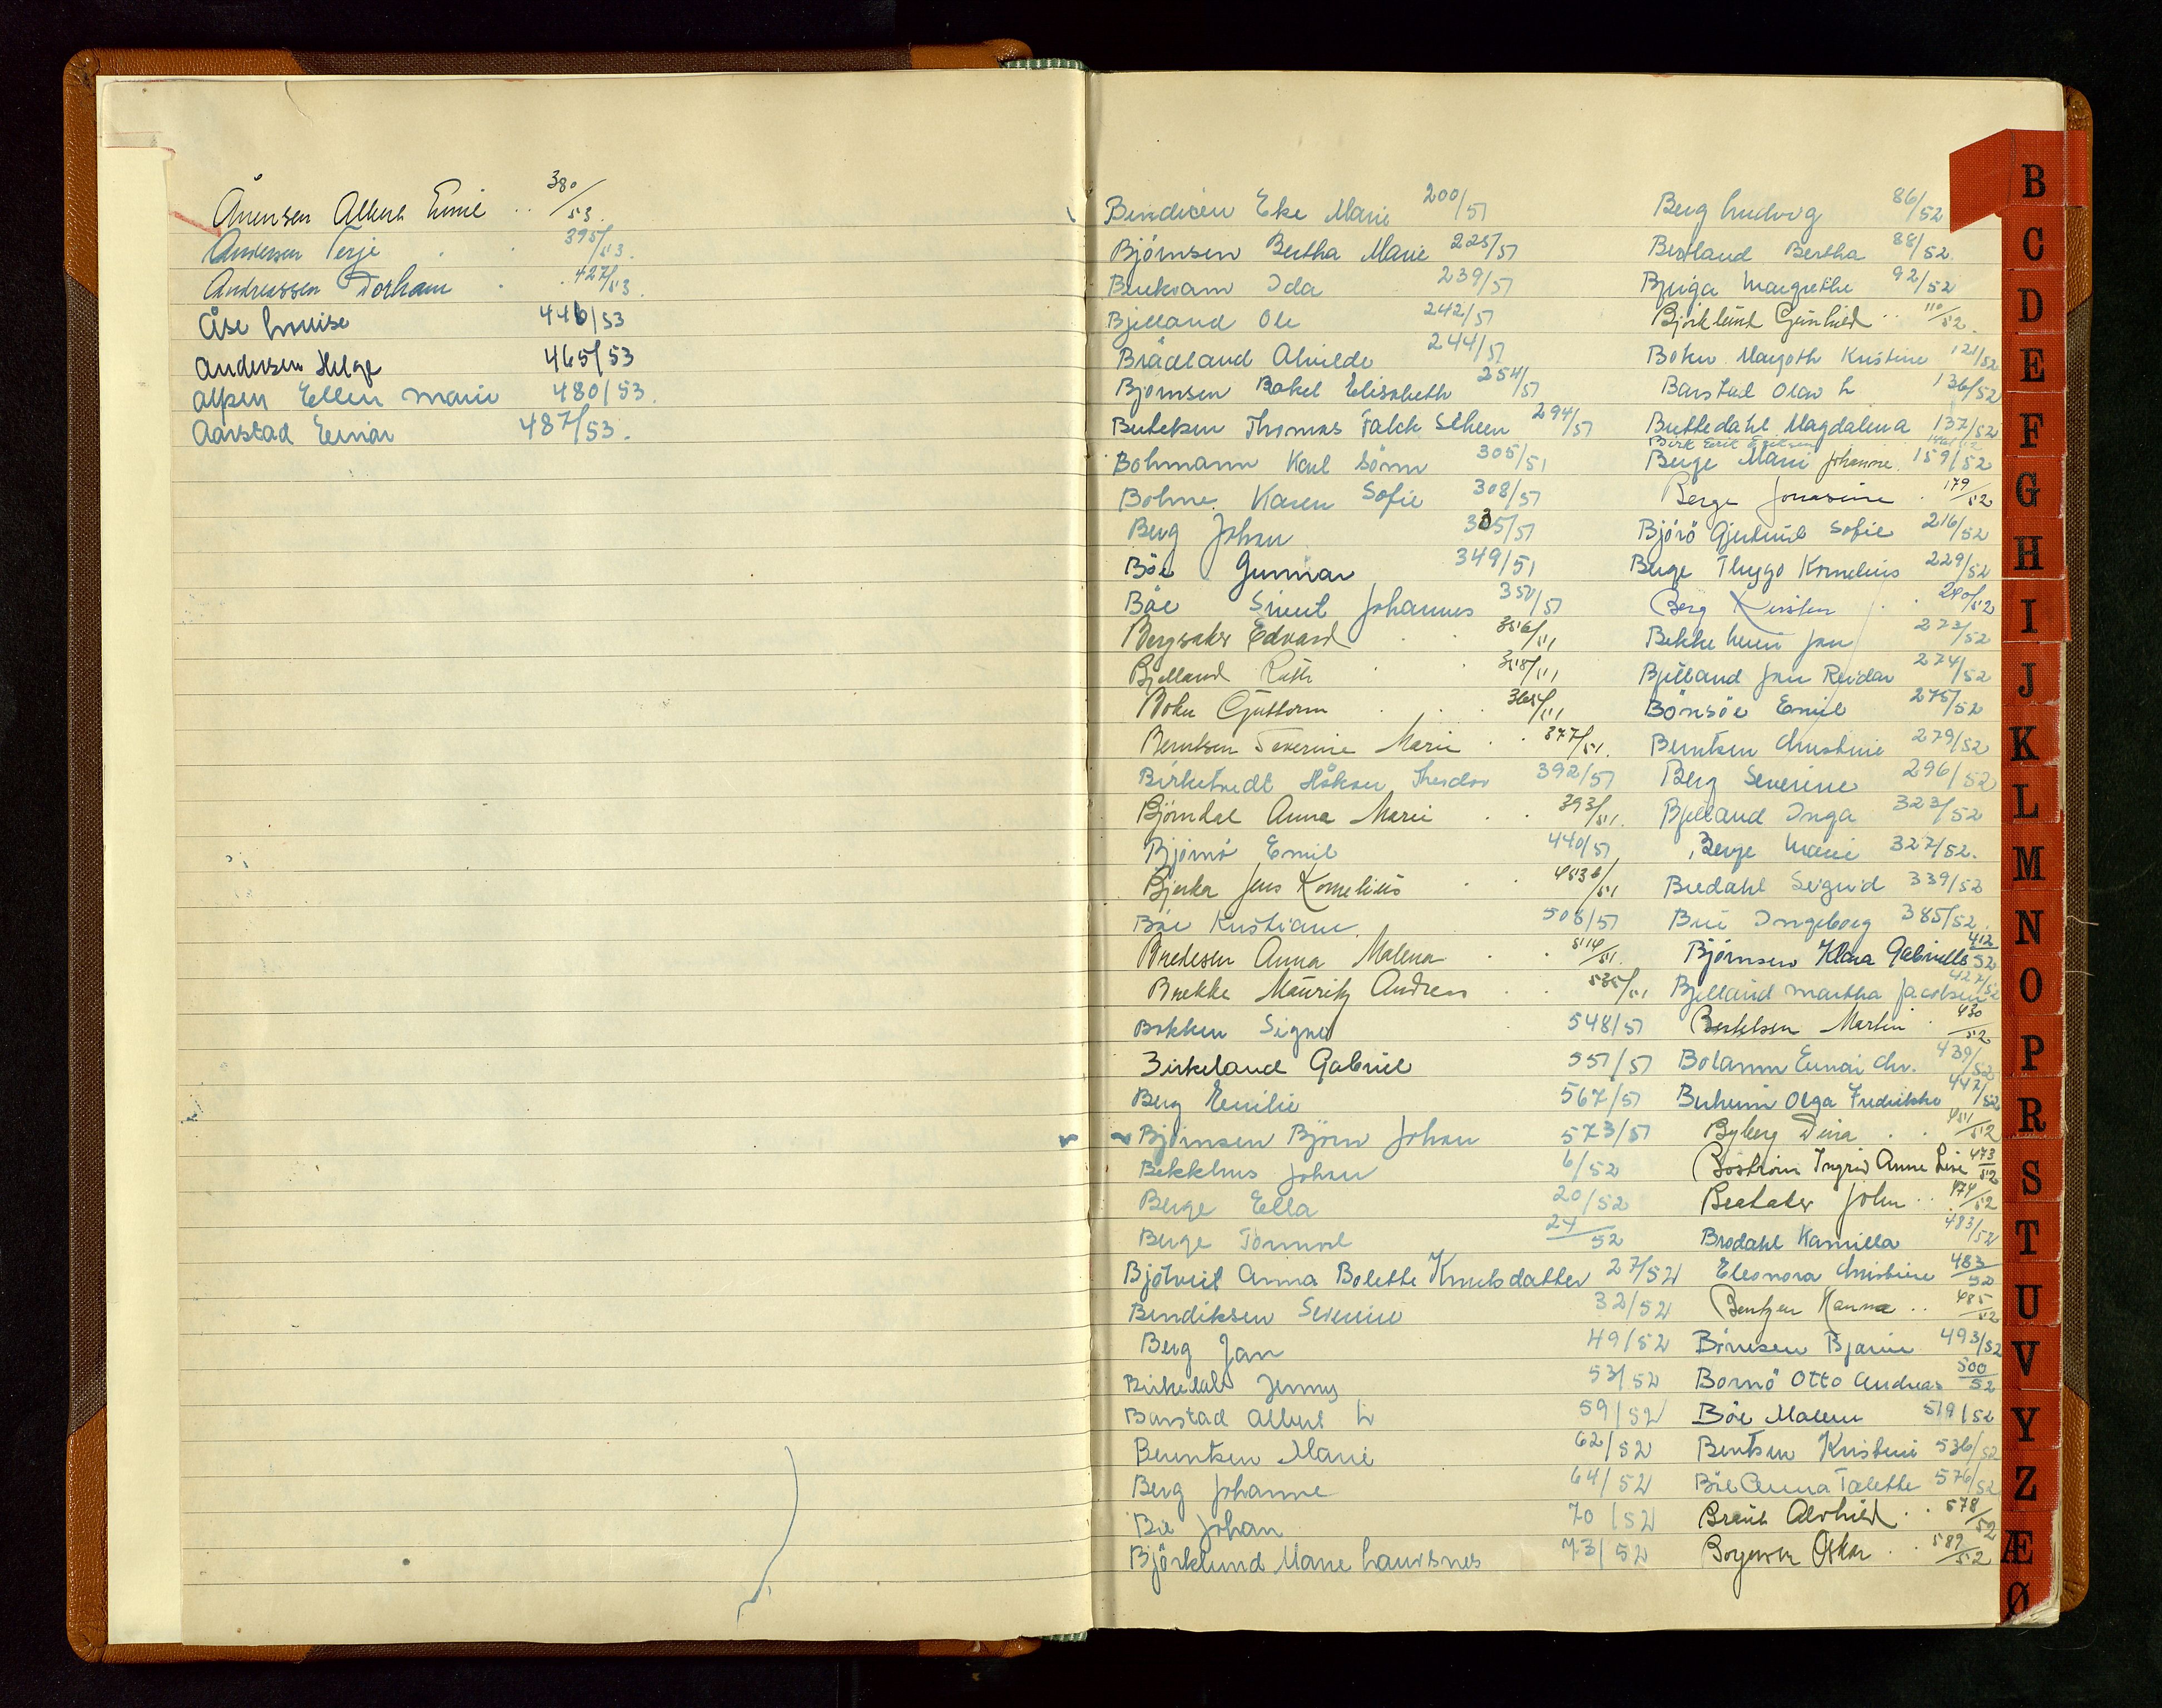 Ånensen Albert Emil .. 380/53.
Andersen Terje . . 395/53.
Andreassen Torhaug . . 427/53.
Åse Louise 446/53
Andersen Helge 465/53
Alfsen Ellen Marie 480/53.
Aarstad Einar 487/53.
Bendixen Eke Marie 200/51
Bjørnsen Bertha Marie 225/51
Berkvam Ida 239/51
Bjelland Ole 242/51
Brådland Alvilde 244/51
Bjørnsen Rakel Elisabeth 254/51
Bertelsen Thomas Falck Scheen 294/51
Bohmann Karl 305/51
Bohne Karen Sofie 308/51
Berg Johan 335/51
Böe Gunnar 349/51
Böe Sivert Johannes 350/51
Bergsaker Edvard . . 356/51
Bjelland Ruth . . 358/51
Boku Guttorm . . . 365/51
Berntsen Severine Marie . . 377/51.
Birketvedt Håkon Theodor 392/51
Björndal Anna Marie . . 393/51.
Bjørnö Emil 440/51
Bjerka Jens Kornelius . . 453/51
Böe Kristiane 508/51
Bredesen Anna Malena . . 514/51.
Brekke Mauritz Andreas . . 535/51
Bokken Signe 548/51
Birkeland Gabriel 551/51
Berg Emilie 567/51
Bjørnsen Björn Johan 573/51
Bekkhus Johan 6/52
Berge Ella 20/52
Berge Tormod 24/52
Bjötveit Anna Bolette Knutsdatter 27/52
Bendiksen Severine 32/52
Berg Jan 49/52
Birkedal Jenny 53/52
Barstad Albert L 59/52
Berntsen Marie 62/52
Berg Johanne 64/52
Bie Johan 70/52
Björklund Marie 73/52
Berg Ludvig 86/52
Bertha 88/52.
Bjerga Margrethe 92/52
Björklund Gunhild .. 110/52.
Boku Margoth Kristine 121/52
Barstad Olav L 136/52
Buttedahl Magdalena 137/52
Birk Erik Eriksen 146/52
Berge Marie Johanne. 159/52
Berge Jonasine . 179/52
Björö Gjertrud Sofie 216/52
Berge Thygo Kornelius 229/52
Berg Kirsten . . 240/52
Bekkeheim Jan 273/52
Bjelland Jan Reidar 274/52
Bönsöe Emil 275/52
Berntsen Christine 279/52
Berg Severine 296/52
Bjelland Inga 323/52
Berge Marie 327/52.
Bredahl Sigurd 339/52
Brie Ingeborg 385/52.
Bjørnsen Klara Gabrielle 412/52
Bjelland Martha Jacobsen 427/52
Bertelsen Martin . 430/52
Einar Chr. 439/52
Berheim Olga Fredrikke 447/52
Byberg Dina . . 451/52
Boström Ingrid Anne Lise 473/52
John .. 474/52
Brodahl Kamilla 483/52
Eleonora Christine 483/52
Bentzen Hanna .. 485/52
Börresen Bjarne 493/52
Bornö Otto Andreas 500/52
Böe Malene 519/52
Bentsen Kristine 536/52
Böe Anna Talette 576/52
Alvhild . . 578/52
Oskar . . 589/52
B
C
D
E
F
G
H
I
J
K
L
M
N
O
P
R
S
T
U
V
Y
Z
Æ
Ø